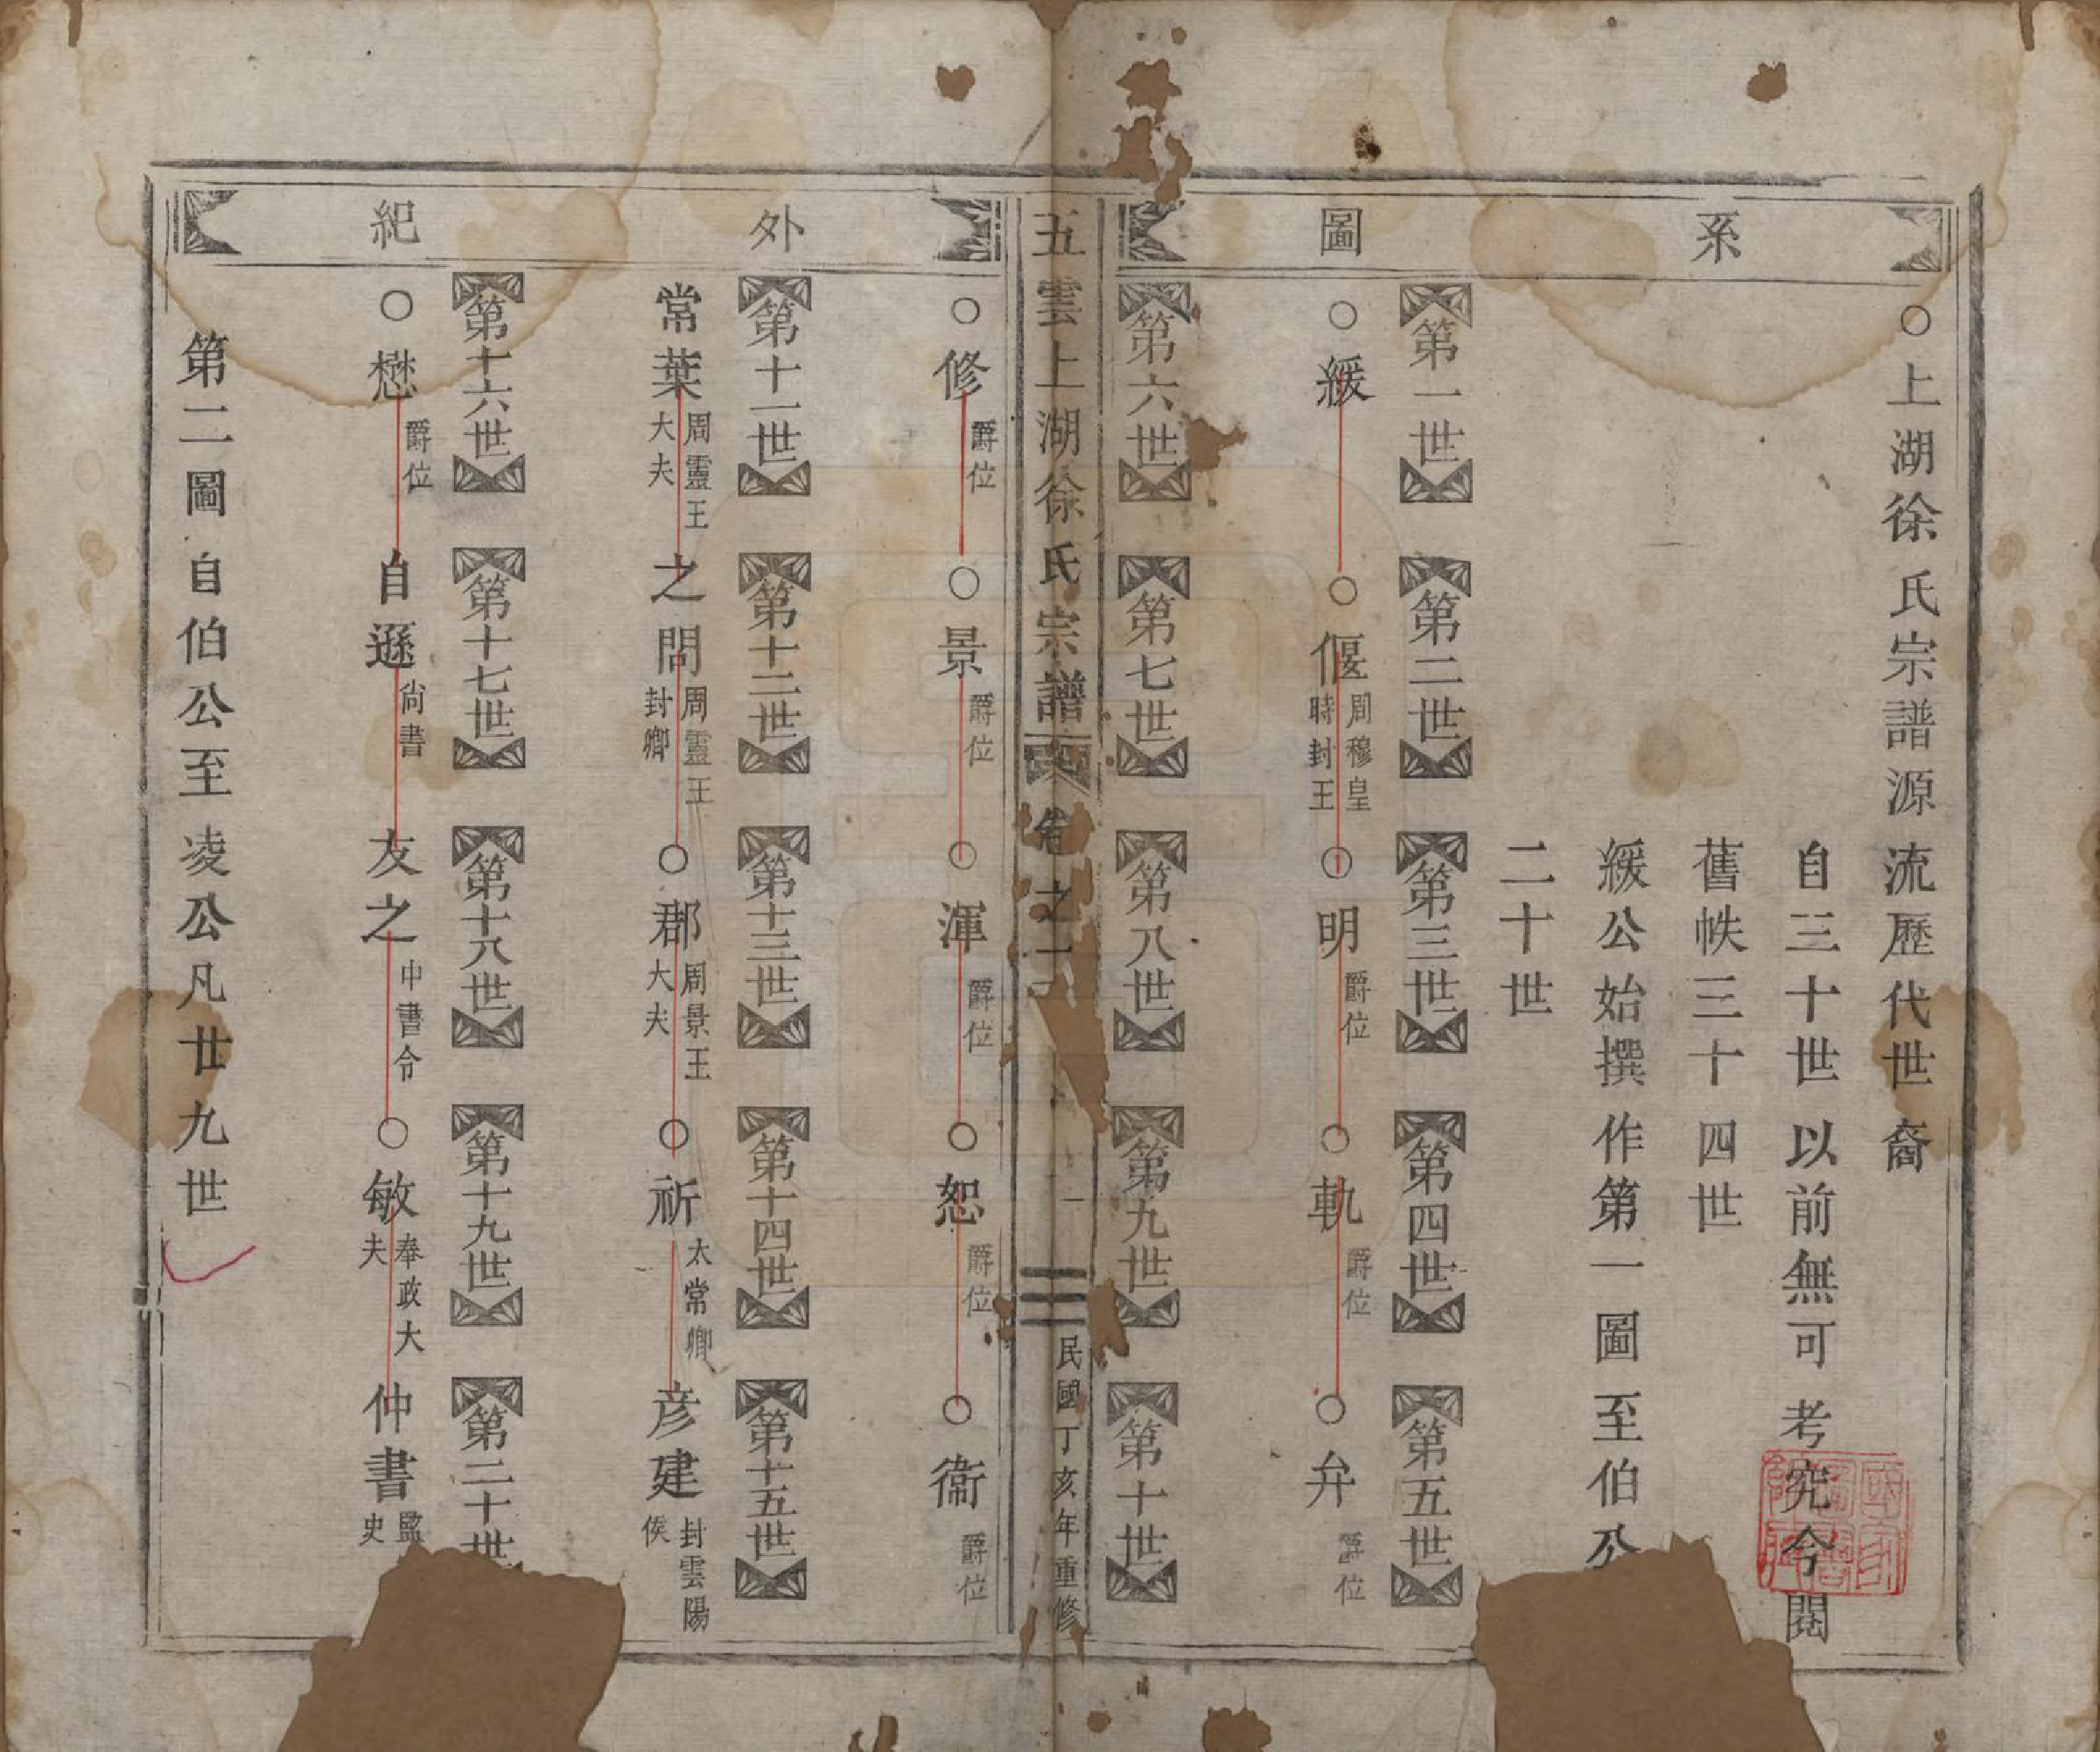 系圖
○上湖徐氏宗譜源流歷代世裔
自三十世以前無可考究今閱
舊帙三十四世
緩公始撰作第一圖至伯公
二十世
第一世 第二世 第三世 第四世 第五世
○緩 ○偃周穆皇時封王 ○明爵位 ○軌爵位 ○弁爵位
第六世 第七世 第八世 第九世 第十世
五雲上湖徐氏宗譜 卷之一 一 民國丁亥年重修
外紀
○修爵位 ○景爵位 ○渾爵位 ○恕爵位 ○衞爵位
第十一世 第十二世 第十三世 第十四世 第十五世
常葉周靈王大夫 之問周靈王封卿 ○郡周景王大夫 ○祈太常卿 彦建封雲陽侯
第十六世 第十七世 第十八世 第十九世 第二十世
○懋爵位 自遜尙書 友之中書令 ○敏奉政大夫 仲書監史
第二圖自伯公至凌公凡廿九世